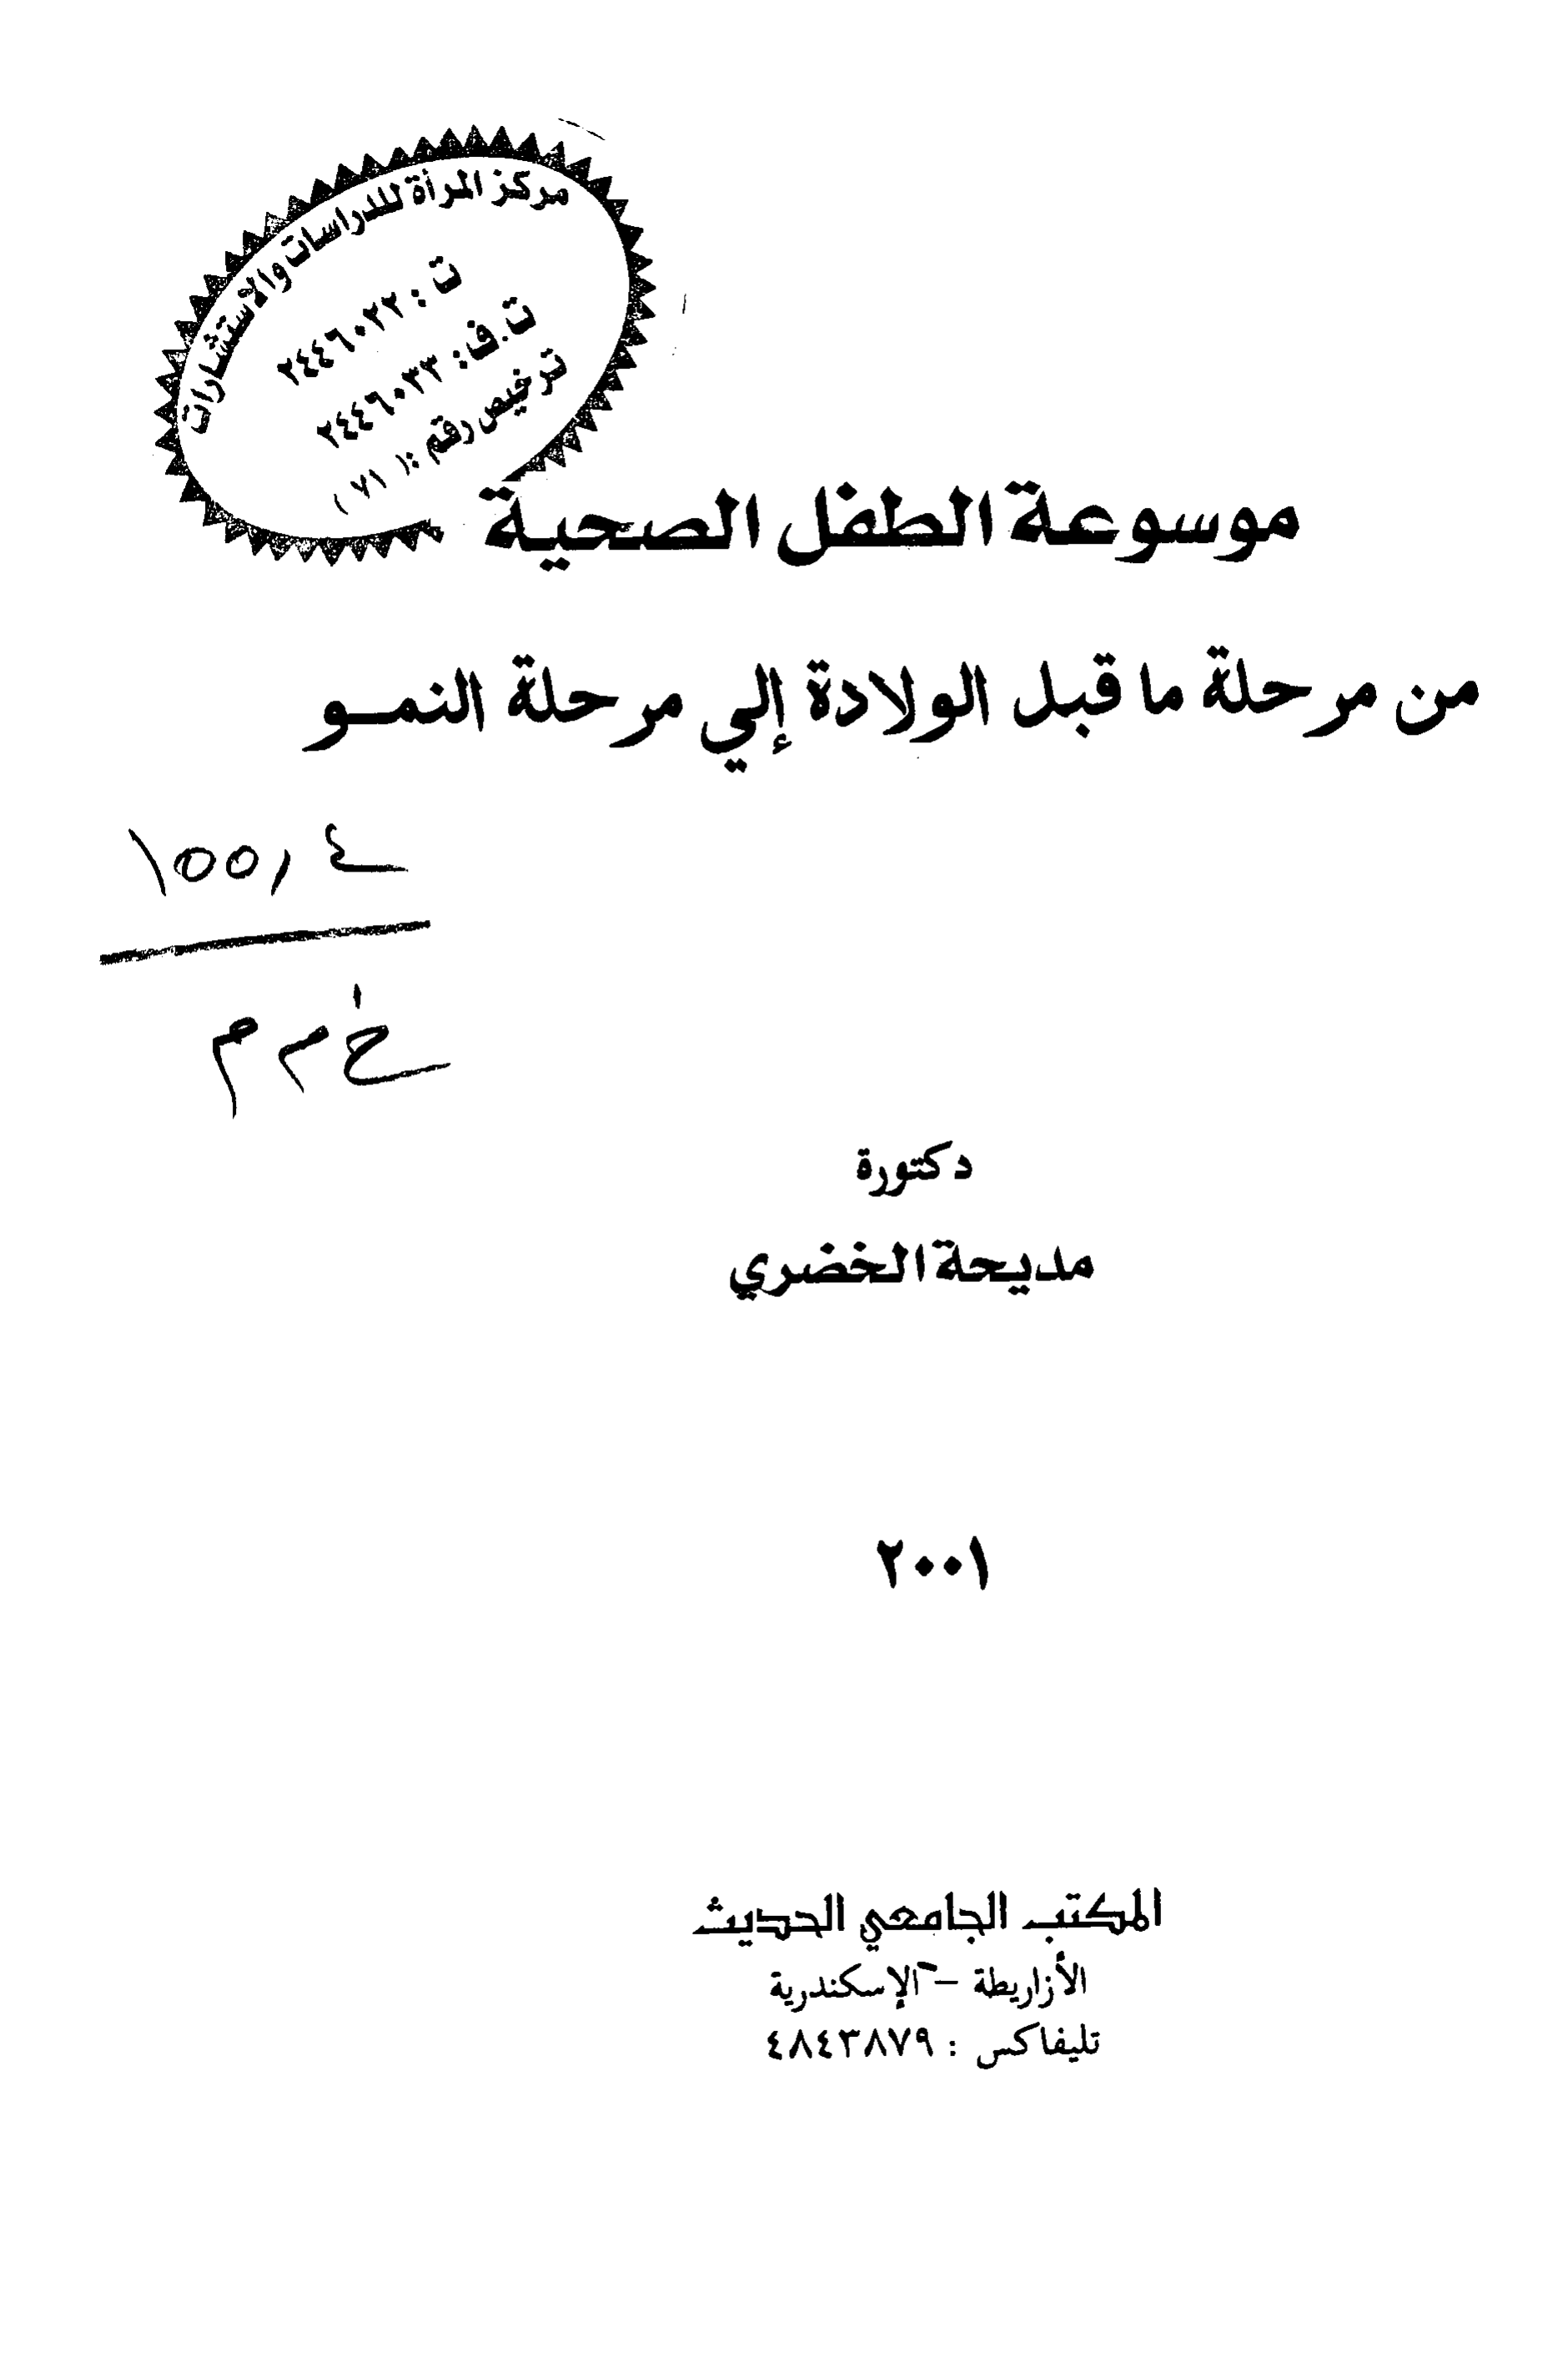 مركز المرأة للدراسات والاستشارات
ت : ٢٤٤٦٠٢٢
ت.ف: ٢٤٤٦٠٣٣
ترخيص رقم :( ٧١ )
موسوعة الطفل الصحية
من مرحلة ما قبل الولادة إلي مرحلة النمـو
١٥٥,٤
خ م م
دكتورة
مديحة الخضري
٢٠٠١
المكتب الجامعي الحديث
الأزاريطة – الإسكندرية
تليفاكس : ٤٨٤٣٨٧٩